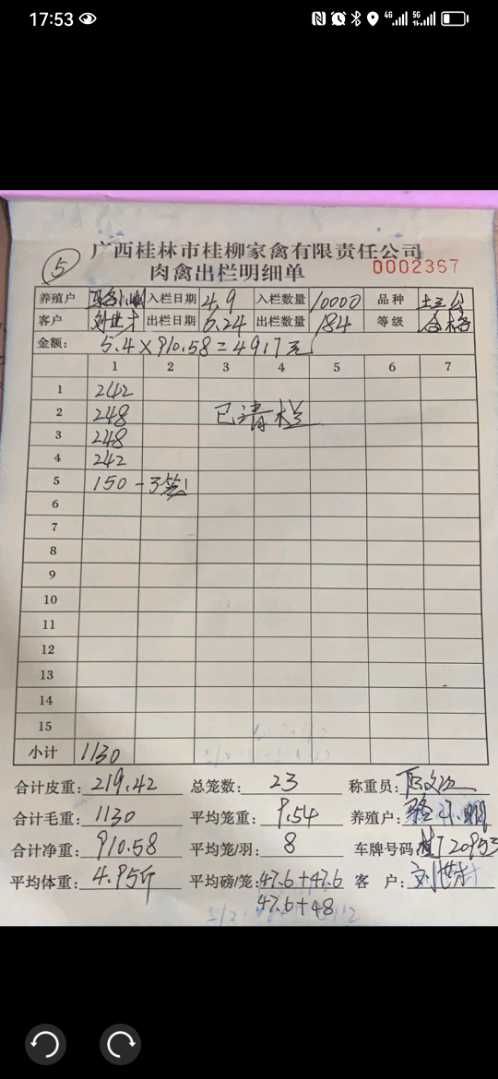 17:53
4G 5G
广西桂林市桂柳家禽有限责任公司
⑤ 肉禽出栏明细单 0002367
养殖户 入栏日期 4.9 入栏数量 10000 品种
客户 刘世才 出栏日期 6.24 出栏数量 184 等级 合格
金额: 5.4×910.58=4917元
1 2 3 4 5 6 7
1 242
2 248 已清栏
3 248
4 242
5 150-3笼
6
7
8
9
10
11
12
13
14
15
小计 1130
合计皮重: 219.42 总笼数: 23 称重员:
合计毛重: 1130 平均笼重: 9.54 养殖户:
合计净重: 910.58 平均笼/羽: 8 车牌号码
平均体重: 4.95斤 平均磅/笼: 47.6+47.6 客 户: 刘世才
47.6+48